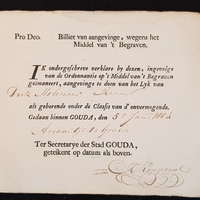 Pro Deo. Billiet van aangevinge, wegens het
Middel van 't Begraven.
IK ondergeschreve verklare by dezen, ingevolge
van de Ordonnantie op 't Middel van 't Begraven
geëmaneert, aangevinge te doen van het Lyk van
Dirk
als gehorende onder de Classis van d'onvermogende.
Gedaan binnen GOUDA, den 5
Ter Secretarye der Stad GOUDA,
geteikent op datum als boven.